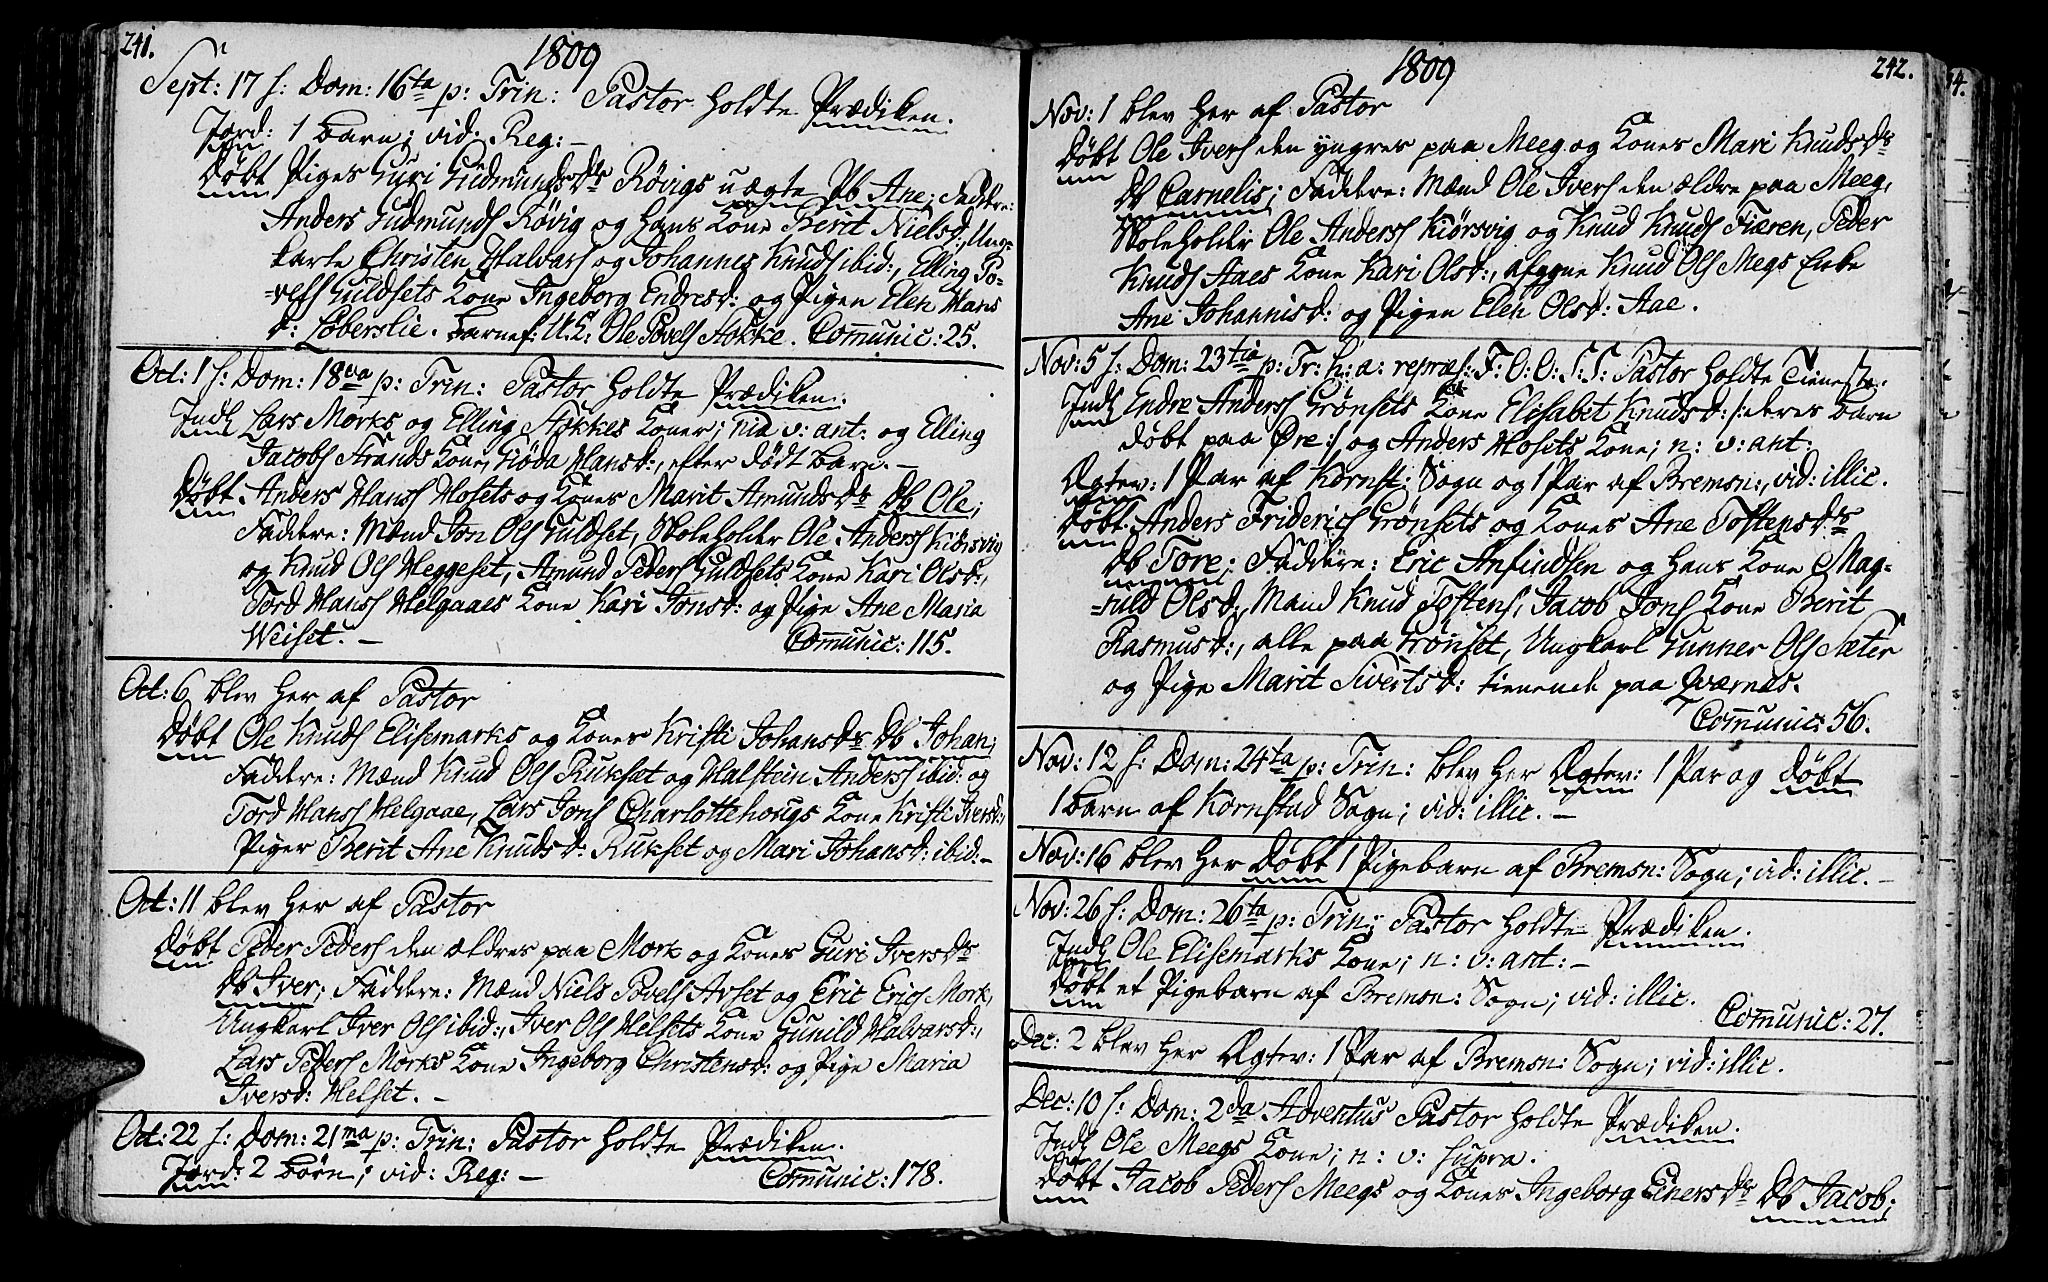 241.
1809
Sept: 17 s: Dom: 16ta p: Trin: Pastor holdte Prædiken.
Jord: 1 barn; vid: Reg: –
Døbt Piges Guri Gudmundsdr Røvigs uægte Pb Ane; Faddre:
Anders Gudmunds Røvig og hans Kone Berit Nielsd:, Ung-
karle Christen Halvars og Johannes Knuds ibid:, Elling Po-
-vels Guldsets Kone Ingeborg Endresd: og Pigen Elen Hans
d: Løberslie. Barnef: U.K: Ole Povels Stokke. Comunic: 25.
Oct: 1 s: Dom: 18va p: Trin: Pastor holdte Prædiken.
Indl Lars Morks og Elling Stokkes Koner; n: v: ant: og Elling
Jacobs Strands Kone, Giøda Hansd:, efter dødt barn. –
Døbt Anders Hans Hosets og Kones Marit Amundsdr Db Ole;
Faddere: Mænd Jon Ols Guldset, Skoleholder Ole Anders Kiørsvig
og Knud Ols Heggeset, Amund Peders Guldsets Kone Kari Olsd:,
Tord Hans Helgaaes Kone Kari Jonsd: og Pige Ane Maria
Weiset. –
Comunic: 115.
Oct: 6 blev her af Pastor
Døbt Ole Knuds Elisemarks og Kones Kristi Johansdr Db Johan;
Faddere: Mænd Knud Ols Rukset og Halstein Anders ibid: og
Tord Hans Helgaae, Lars Jons Charlottehougs Kone Kristi Iversd:,
Piger Berit Ane Knudsd: Rukset og Mari Johansd: ibid: –
Oct: 11 blev her af Pastor
Døbt Peder Peders den ældres paa Mork og Kones Guri Iversdr
Db Iver; Faddere: Mænd Niels Povels Avset og Eric Erics Mork,
Ungkarl Iver Ols ibid:, Iver Ols Helsets Kone Gunild Halvarsd:,
Lars Peders Morks Kone Ingeborg Christensd: og Pige Maria
Iversd: Helset. –
Oct: 22 s: Dom: 21ma p: Trin: Pastor holdte Prædiken.
Jord: 2 børn; vid: Reg: –
Comunic: 178.
1809
242.
Nov: 1 blev her af Pastor
Døbt Ole Ivers den yngres paa Meeg og Kones Mari Knudsdr
Db Carnelis; Faddere: Mænd Ole Ivers den ældre paa Meeg,
Skoleholder Ole Anders Kiørsvig og Knud Knuds Fiæren, Peder
Knuds Aaes Kone Kari Olsd:, afggne Knud Ols Megs Enke
Ane Johannisd: og Pigen Elen Olsd: Aae.
Nov: 5 s: Dom: 23tia p: Tr: h: a: repræs: F: O: O: S: S: Pastor holdte Tieneste.
Indl Endre Anders Grønsets Kone Elisabet Knudsd: /: deres barn
døbt paa Øre :/ og Anders Hosets Kone; n: v: ant:
Ægtev: 1 Par af Kornst: Sogn og 1 Par af Bremsn:, vid: illic.
Døbt Anders Friderics Grønsets og Kones Ane Toftensdr
Db Tore; Faddere: Eric Anfindsen og hans Kone Mag-
-nild Olsd:, Mand Knud Toftens, Jacob Jons Kone Berit
Rasmusd:, alle paa Grønset, Ungkarl Gunner Ols Sæter
og Pige Marit Sivertsd: tienende paa Qværnas.
Comunic: 56.
Nov: 12 s: Dom: 24ta p: Trin: blev her Ægtev: 1 Par og døbt
1 barn af Kornstad Sogn; vid: illic. –
Nov: 16 blev her Døbt 1 Pigebarn af Bremsn: Sogn; vid: illic. –
Nov: 26 s: Dom: 26ta p: Trin: Pastor holdte Prædiken.
Indl Ole Elisemarks Kone; n: v: ant: –
Døbt et Pigebarn af Bremsn: Sogn; vid: illic.
Comunic: 27.
Dec: 2 blev her Ægtev: 1 Par af Bremsn: Sogn; vid: illic.
Dec: 10 s: Dom: 2da Adventus Pastor holdte Prædiken.
Indl Ole Meegs Kone; n: v: supra.
Døbt Jacob Peders Meegs og Kones Ingeborg Einersdr Db Jacob;